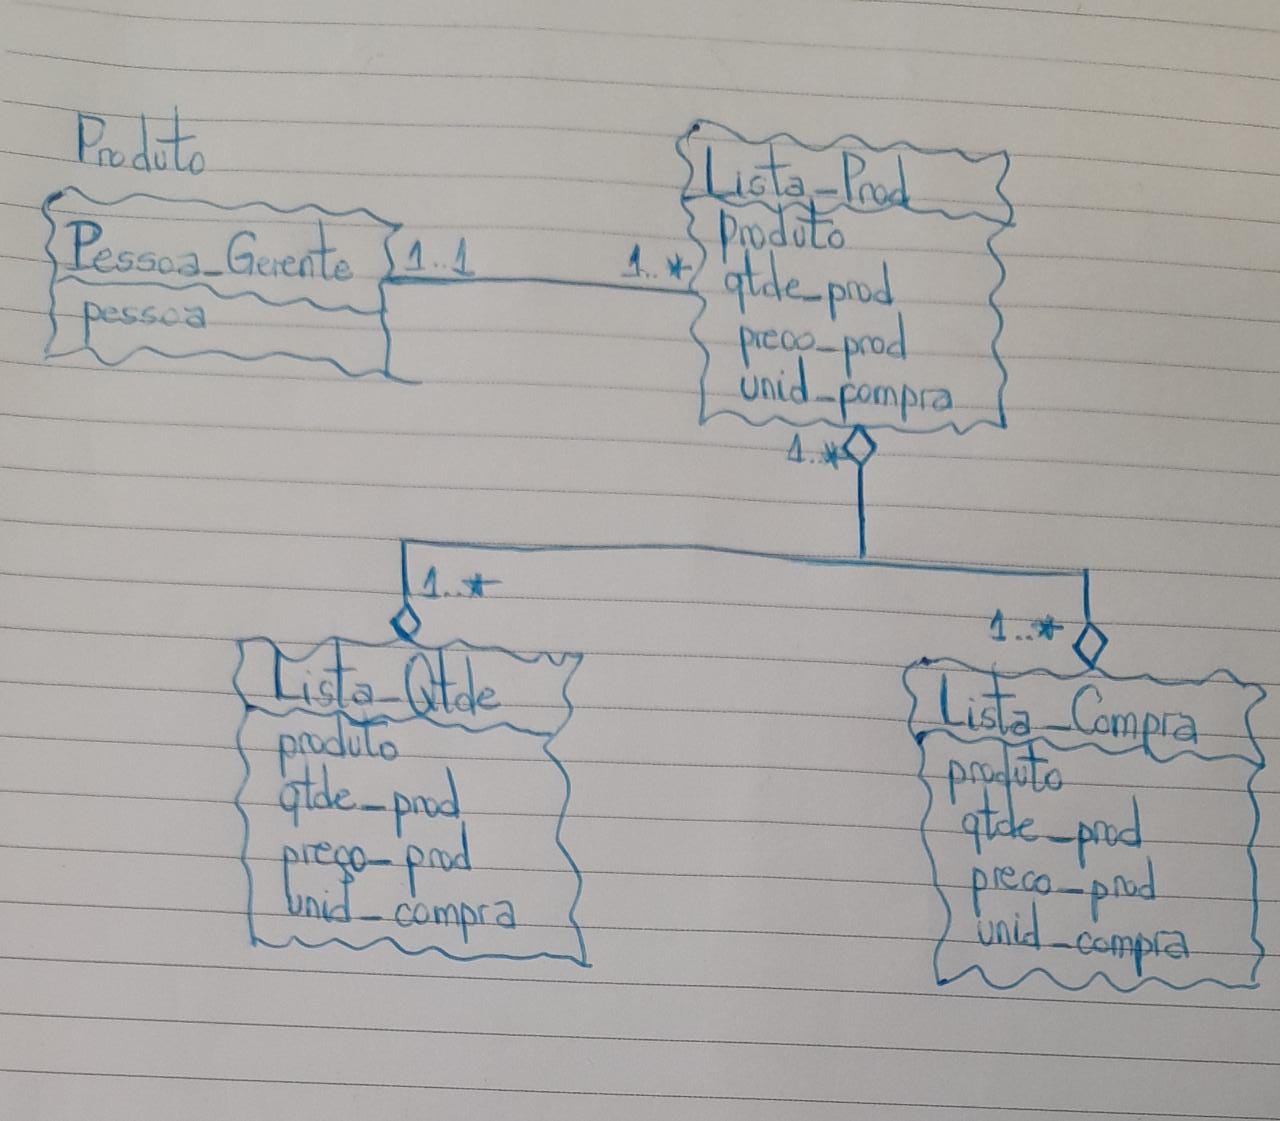 Produto
Pessoa_Gerente
pessoa
1..1
1..*
Lista_Prod
produto
qtde_prod
preco_prod
unid_compra
1..*
1..*
1..*
Lista_Qtde
produto
qtde_prod
preço_prod
unid_compra
Lista_Compra
produto
qtde_prod
preco_prod
unid_compra